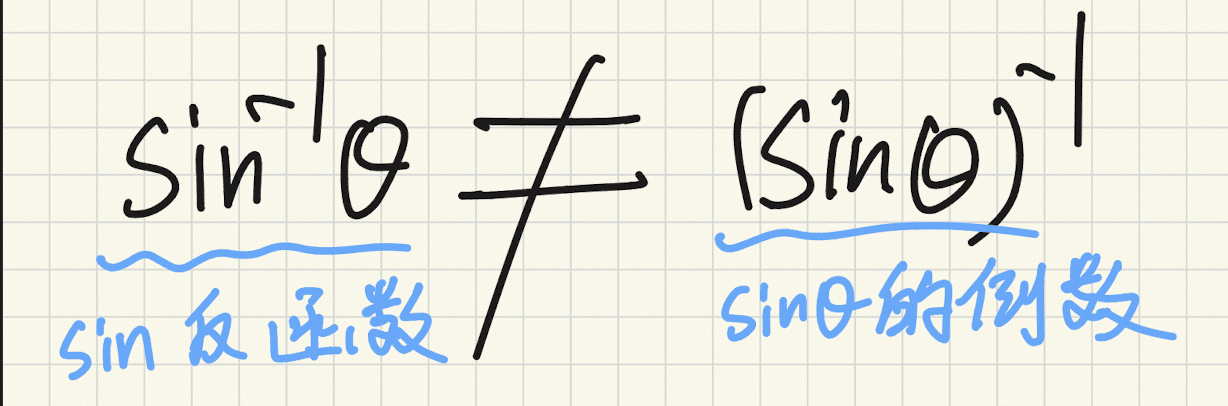 sin⁻¹θ ≠ (sinθ)⁻¹
sin 反函数 sinθ的倒数